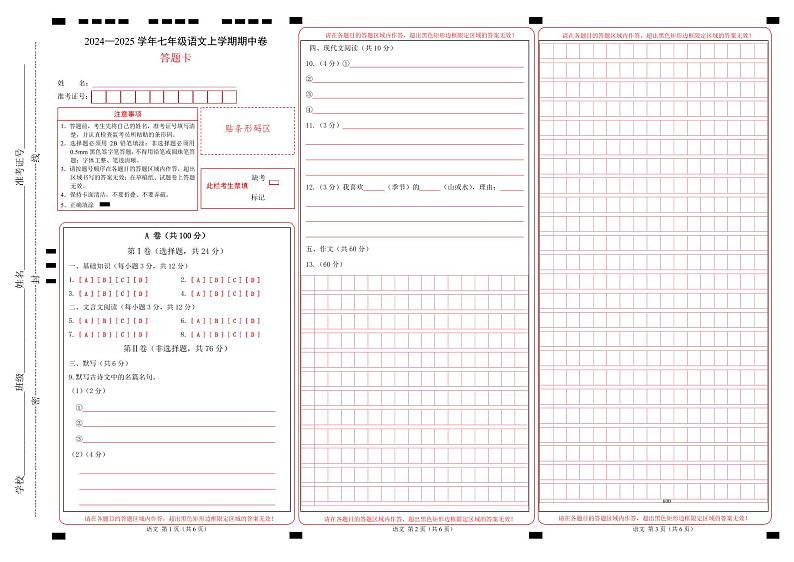 学校
班级
姓名
准考证号
密
封
线
2024—2025 学年七年级语文上学期期中卷
答题卡
姓　名：
准考证号：
注意事项
1．答题前，考生先将自己的姓名，准考证号填写清
楚，并认真检查监考员所粘贴的条形码。
2．选择题必须用 2B 铅笔填涂；非选择题必须用
0.5mm 黑色签字笔答题，不得用铅笔或圆珠笔答
题；字体工整、笔迹清晰。
3．请按题号顺序在各题目的答题区域内作答，超出
区域书写的答案无效；在草稿纸、试题卷上答题
无效。
4．保持卡面清洁，不要折叠、不要弄破。
5．正确填涂
贴条形码区
此栏考生禁填
缺考
标记
A 卷（共 100 分）
第Ⅰ卷（选择题，共 24 分）
一、基础知识（每小题 3 分，共 12 分）
1. [ A ] [ B ] [ C ] [ D ] 2. [ A ] [ B ] [ C ] [ D ]
3. [ A ] [ B ] [ C ] [ D ] 4. [ A ] [ B ] [ C ] [ D ]
二、文言文阅读（每小题 3 分，共 12 分）
5. [ A ] [ B ] [ C ] [ D ] 6. [ A ] [ B ] [ C ] [ D ]
7. [ A ] [ B ] [ C ] [ D ] 8. [ A ] [ B ] [ C ] [ D ]
第Ⅱ卷（非选择题，共 76 分）
三、默写（共 6 分）
9.默写古诗文中的名篇名句。
（1）（2 分）
①
②
③
（2）（4 分）
请在各题目的答题区域内作答，超出黑色矩形边框限定区域的答案无效！
语文 第 1 页（共 6 页）
请在各题目的答题区域内作答，超出黑色矩形边框限定区域的答案无效！
四、现代文阅读（共 10 分）
10.（4 分）①
②
③
④
11.（3 分）
12.（3 分）我喜欢（季节）的（山或水），理由：
五、作文（共 60 分）
13.（60 分）
请在各题目的答题区域内作答，超出黑色矩形边框限定区域的答案无效！
语文 第 2 页（共 6 页）
请在各题目的答题区域内作答，超出黑色矩形边框限定区域的答案无效！
600
请在各题目的答题区域内作答，超出黑色矩形边框限定区域的答案无效！
语文 第 3 页（共 6 页）